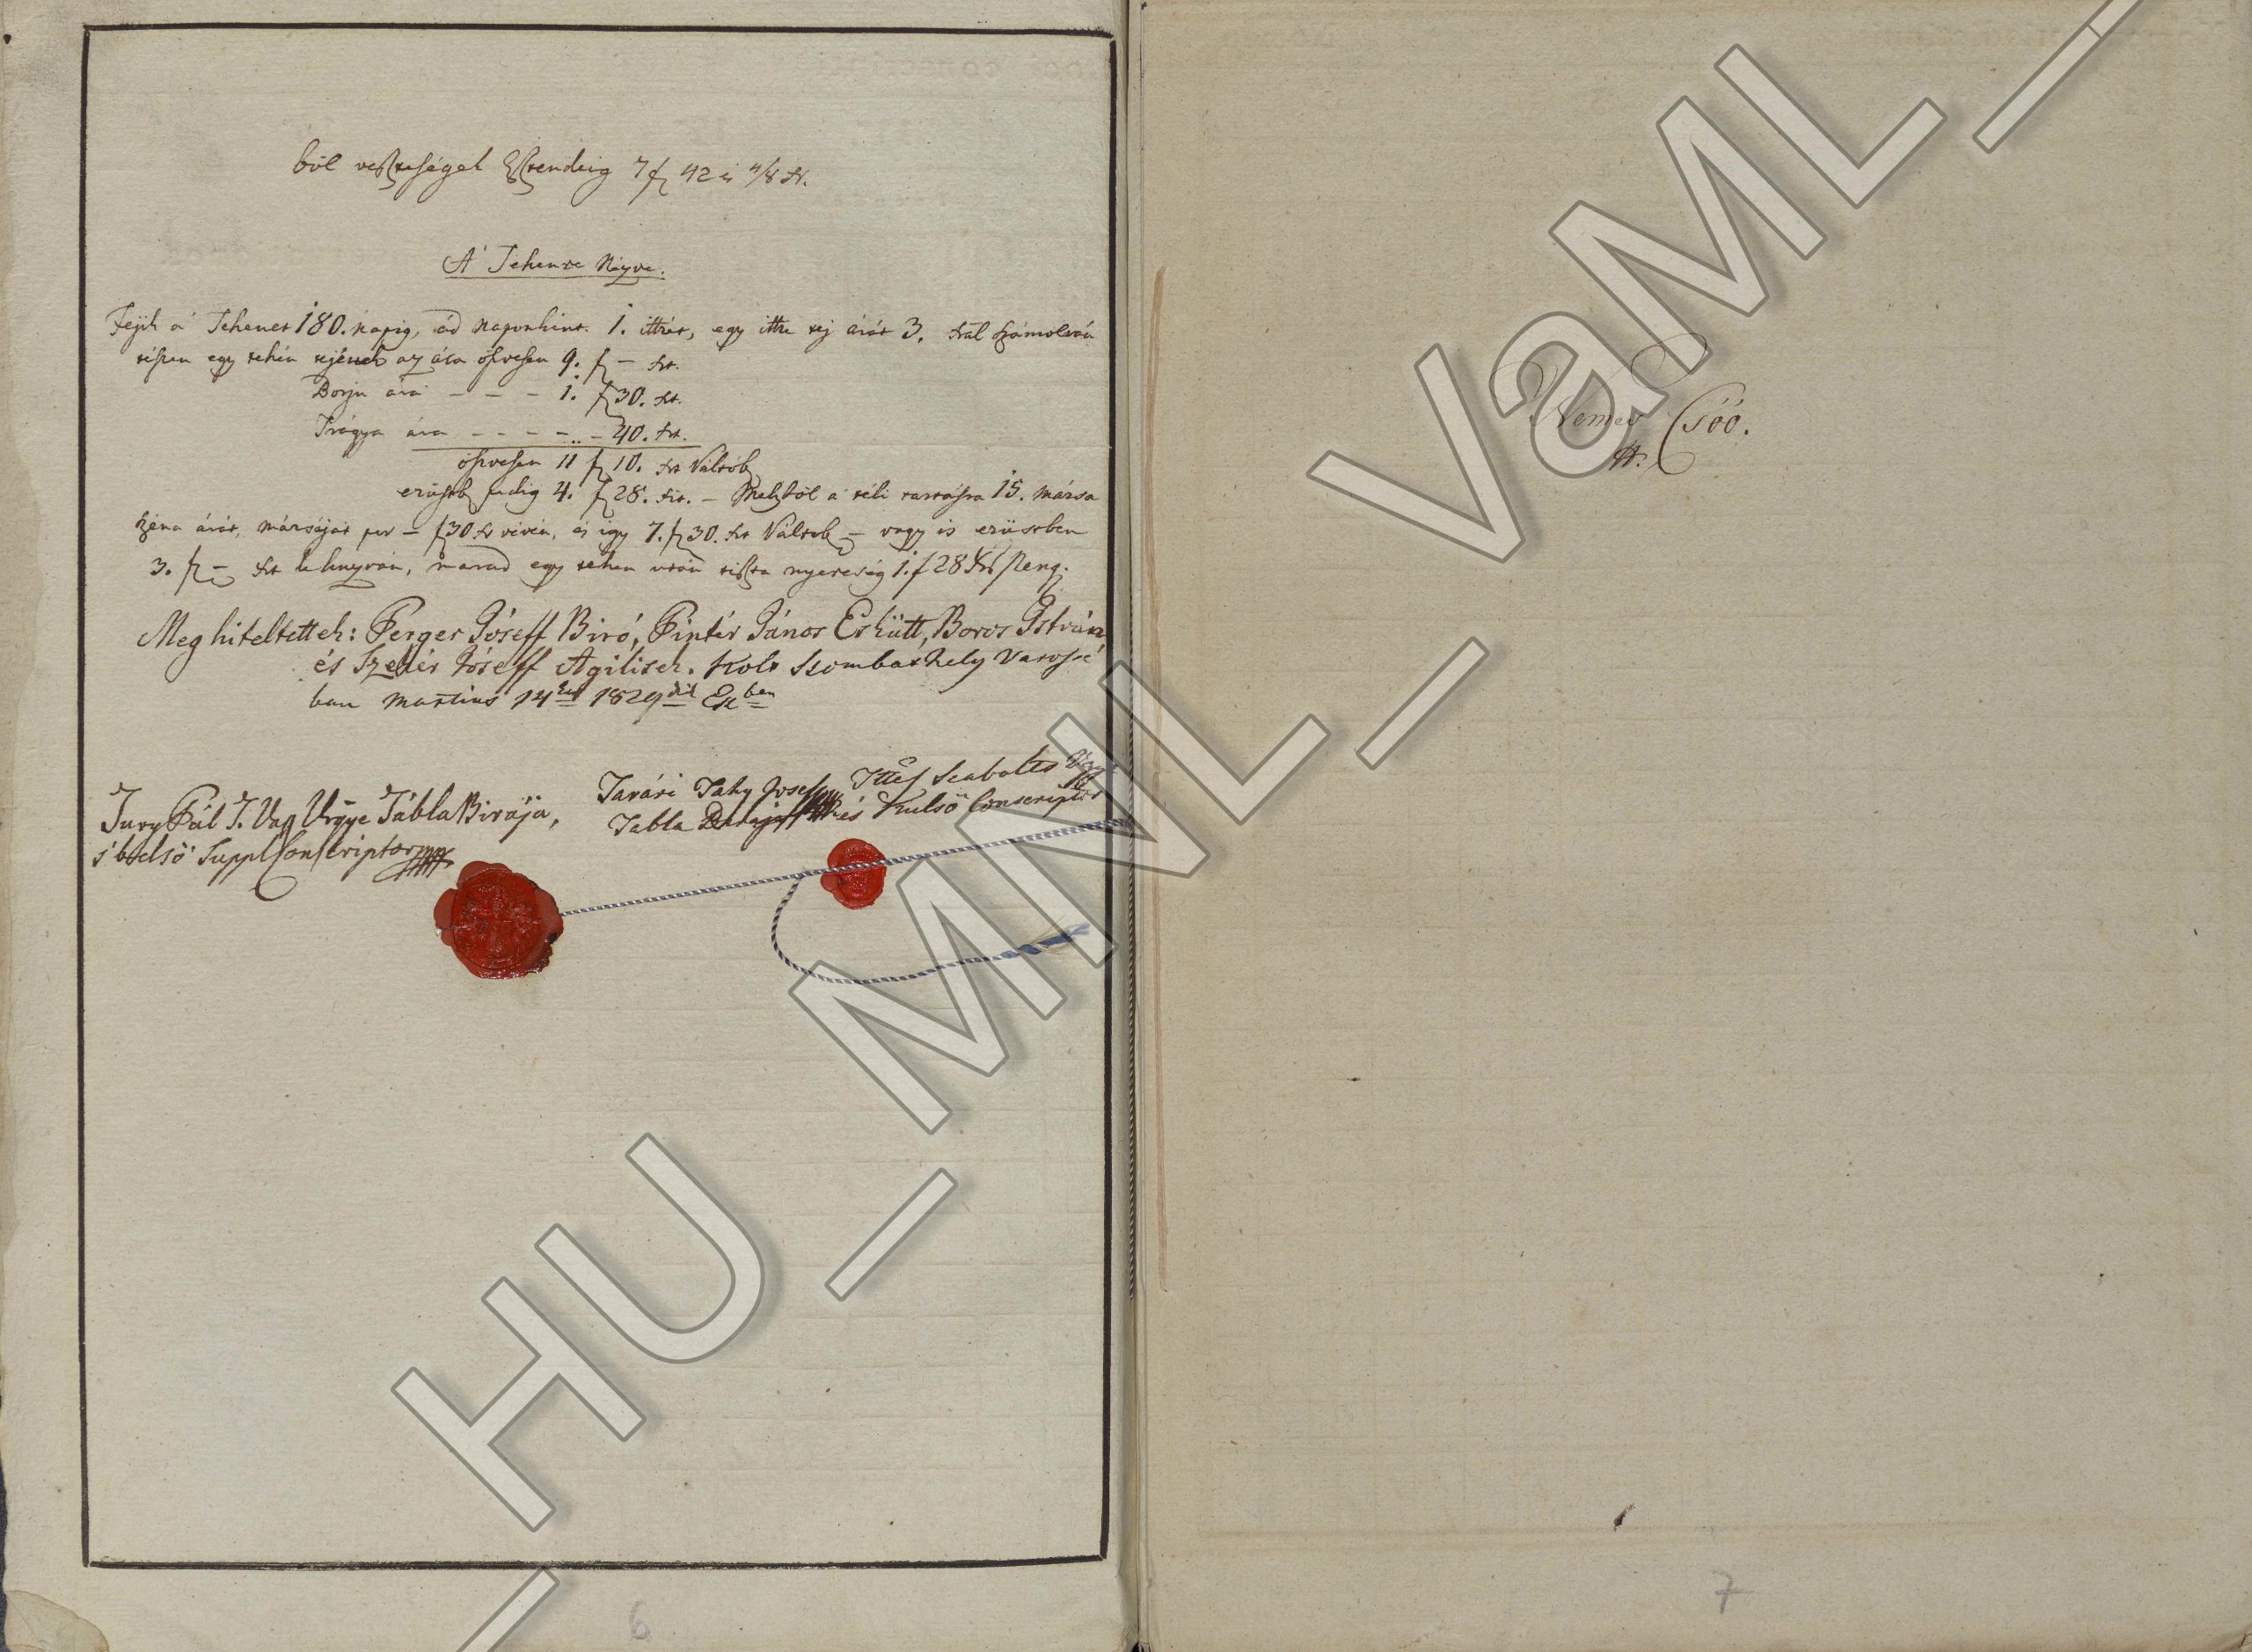 ből veszteséget Esztendeig 7 f 42 és 4/8 kr.
A' Tehenre Nézve.
Fejik a' Tehenet 180. napig, ád naponkint 1. ittzét, egy ittze tej árát 3. kral számolván
tészen egy tehén tejének az ára öszvesen 9. f – kr.
Borju ára – – – 1. f 30. kr.
Trágya ára – – – – „ – 40. kr.
öszvesen 11 f 10. kr Váltób
ezüstb pedig 4. f 28. kr. – Melyből a' téli tartásra 15. mársa
széna árát, mársáját per – f 30 kr vévén, és igy 7. f 30. kr Váltob – vagy is ezüstben
3. f – kr le huzván, marad egy tehen után tiszta nyereség 1. f 28 kr Peng.
Meg hiteltettek: Perger Jóseff Biró, Pintér János Eskütt, Boros István
és Szekér Jóseff Agilisek. Kolt Szombathely Varossá
ban Martius 14kén 1829dik Eszben
Jury Pál T. Vas Vrgye Tábla Birája,
s' belső Suppl Conscriptor mpr
Tarári Taky Josef
Tabla Biraja és Kulső Conscriptor
Ittes Szabolts
Nemes Csóó.
7
6
HU_MNL_VaML_